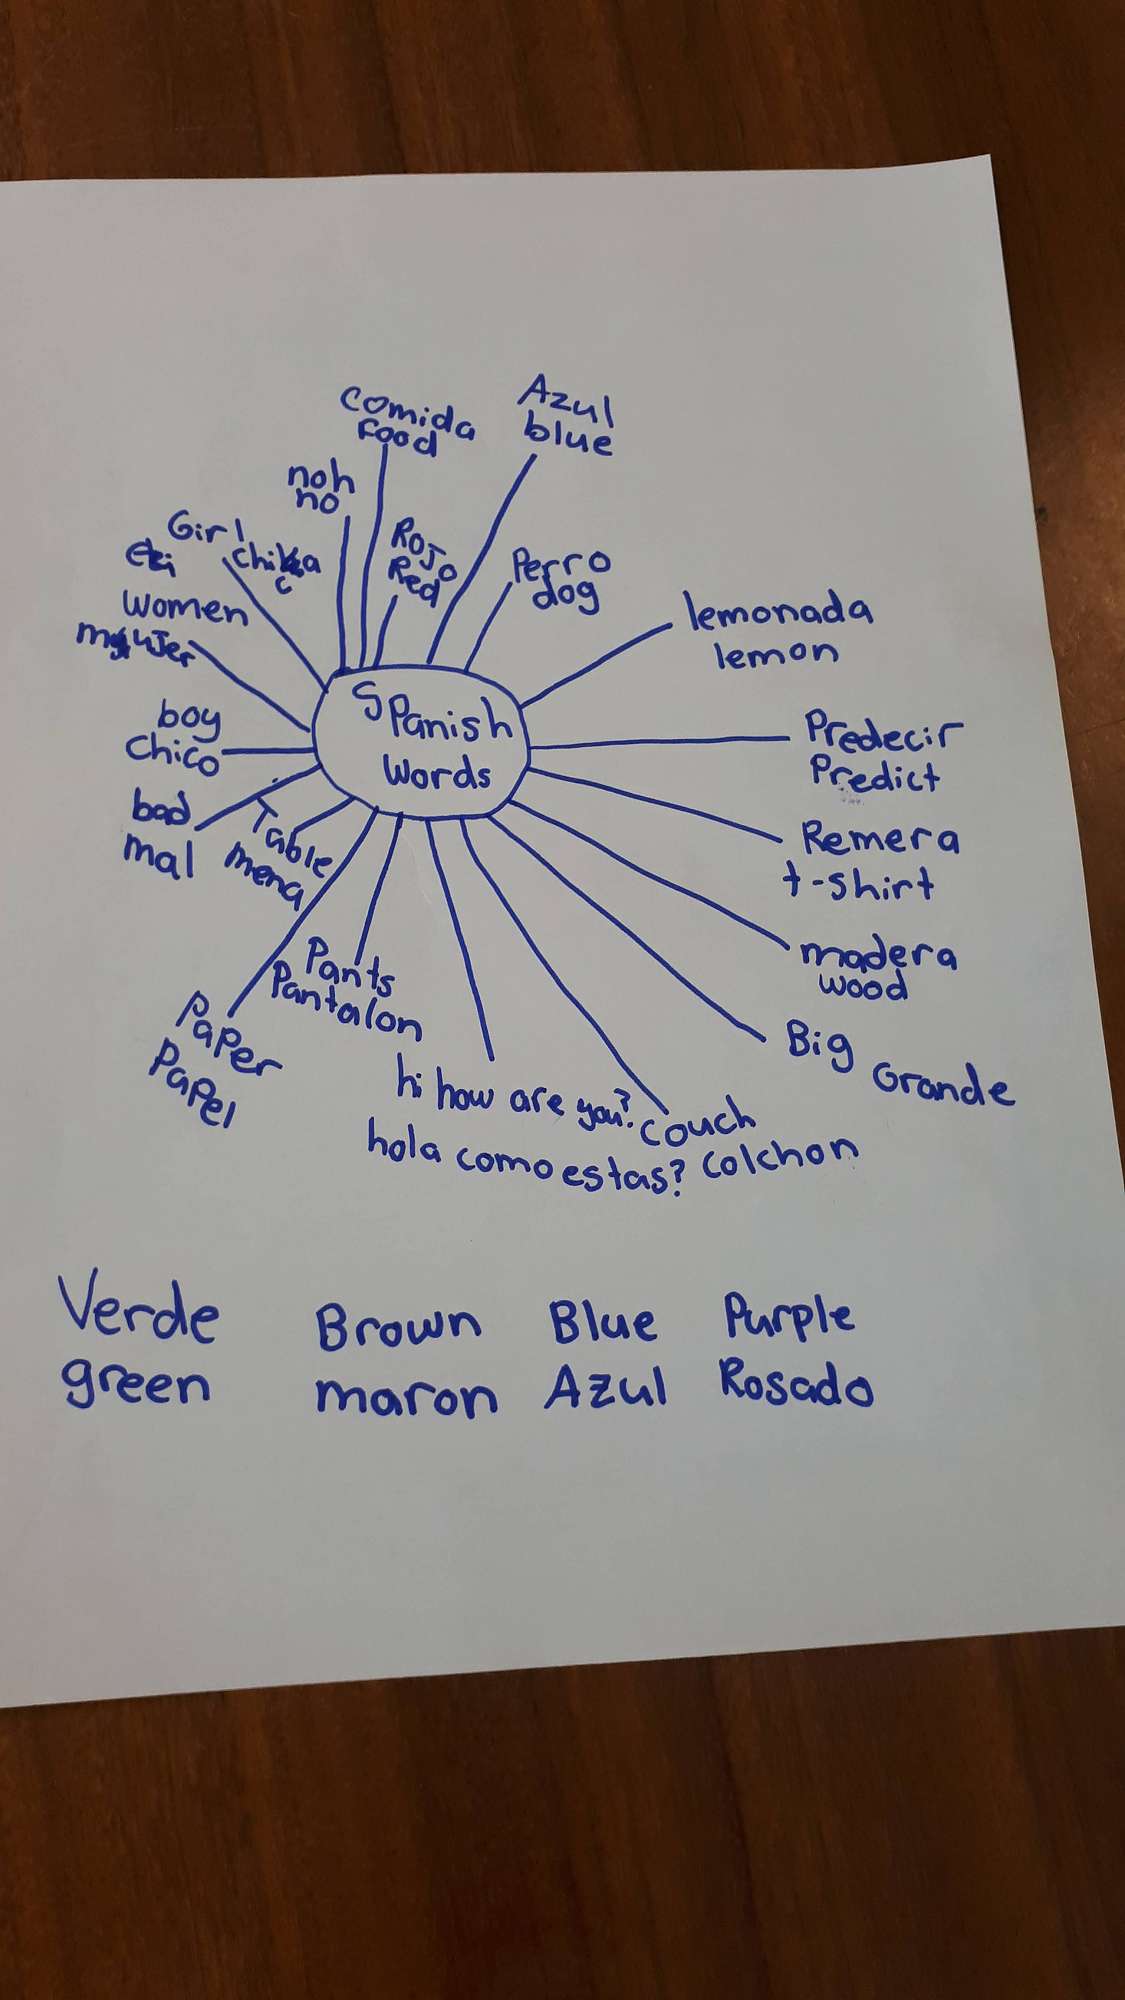 Spanish
Words
Azul
blue
Perro
dog
lemonada
lemon
Predecir
Predict
Remera
t-shirt
madera
wood
Big
Grande
couch
colchon
hi how are you?
hola como estas?
Pants
Pantalon
Paper
Papel
Table
mena
bad
mal
boy
chico
women
Girl
noh
no
comida
food
Rojo
Red
Verde
green
Brown
maron
Blue
Azul
Purple
Rosado